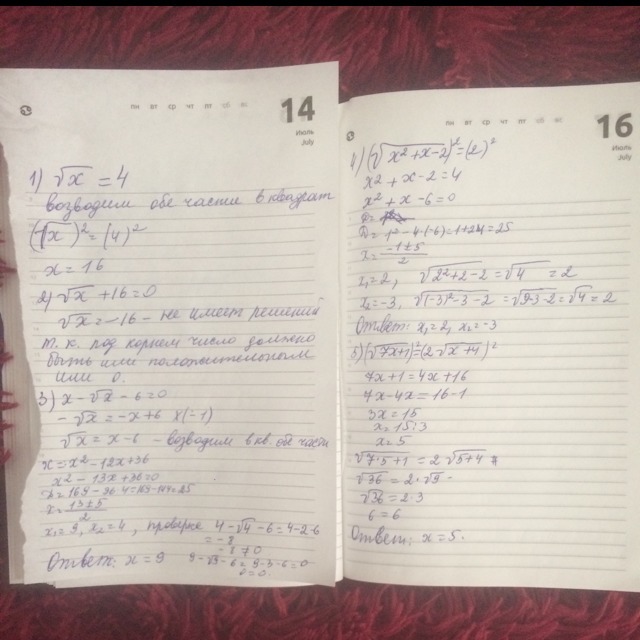 пн вт ср чт пт сб вс
14
Июль
July
1) √x = 4
возводим обе части в квадрат
(√x)² = (4)²
x = 16
2) √x + 16 = 0
√x = -16 - не имеет решений
т. к. под корнем число должно
быть или положительным
или 0.
3) x - √x - 6 = 0
- √x = -x + 6 | x(-1)
√x = x - 6 - возводим в кв об части
x = x² - 12x + 36
x² - 13x + 36 = 0
x = 13 ± 5 / 2
x₁ = 9, x₂ = 4, проверка 4 - √4 - 6 = 4 - 2 - 6
= -8
-8 ≠ 0
Ответ: x = 9 9 - √9 - 6 = 9 - 3 - 6 = 0
0 = 0.
пн вт ср чт пт сб вс
16
Июль
July
4) (√x² + x - 2)² = (2)²
x² + x - 2 = 4
x² + x - 6 = 0
D = 1² - 4·(-6) = 1 + 24 = 25
x = -1 ± 5 / 2
x₁ = 2, √2² + 2 - 2 = √4 = 2
x₂ = -3, √(-3)² - 3 - 2 = √9 - 3 - 2 = √4 = 2
Ответ: x₁ = 2, x₂ = -3
5) (√7x + 1)² = (2√x + 4)²
7x + 1 = 4x + 16
7x - 4x = 16 - 1
3x = 15
x = 15 : 3
x = 5
√7·5 + 1 = 2√5 + 4
√36 = 2·√9
√36 = 2·3
6 = 6
Ответ: x = 5.